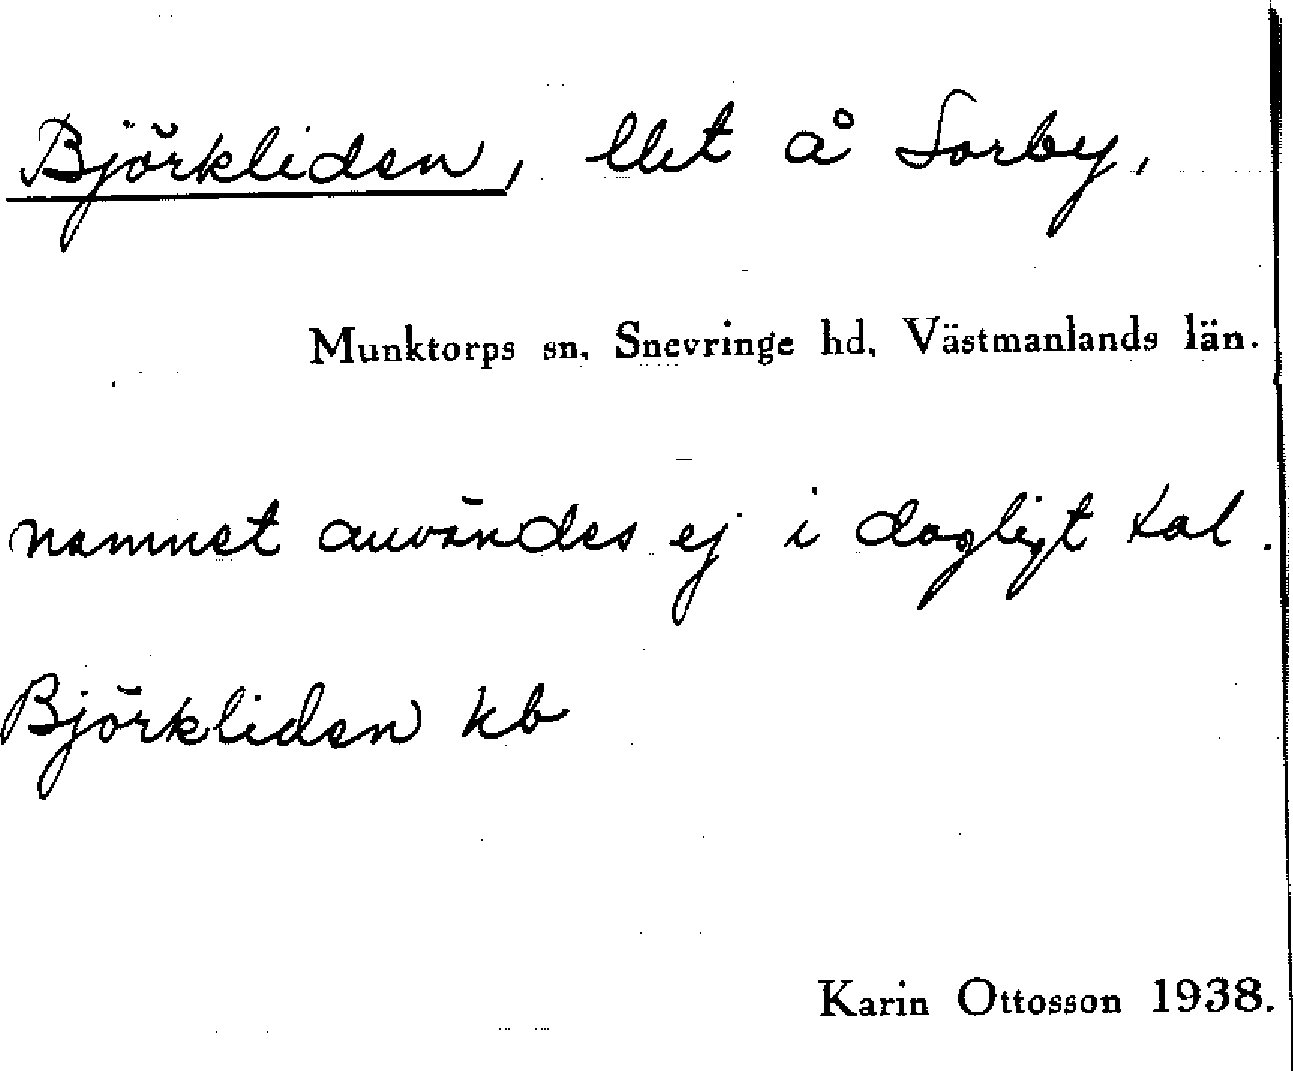 Björkliden, llet å Sorby,
Munktorps sn, Snevringe hd, Västmanlands län.
namnet användes ej i dagligt tal.
Björkliden kb
Karin Ottosson 1938.